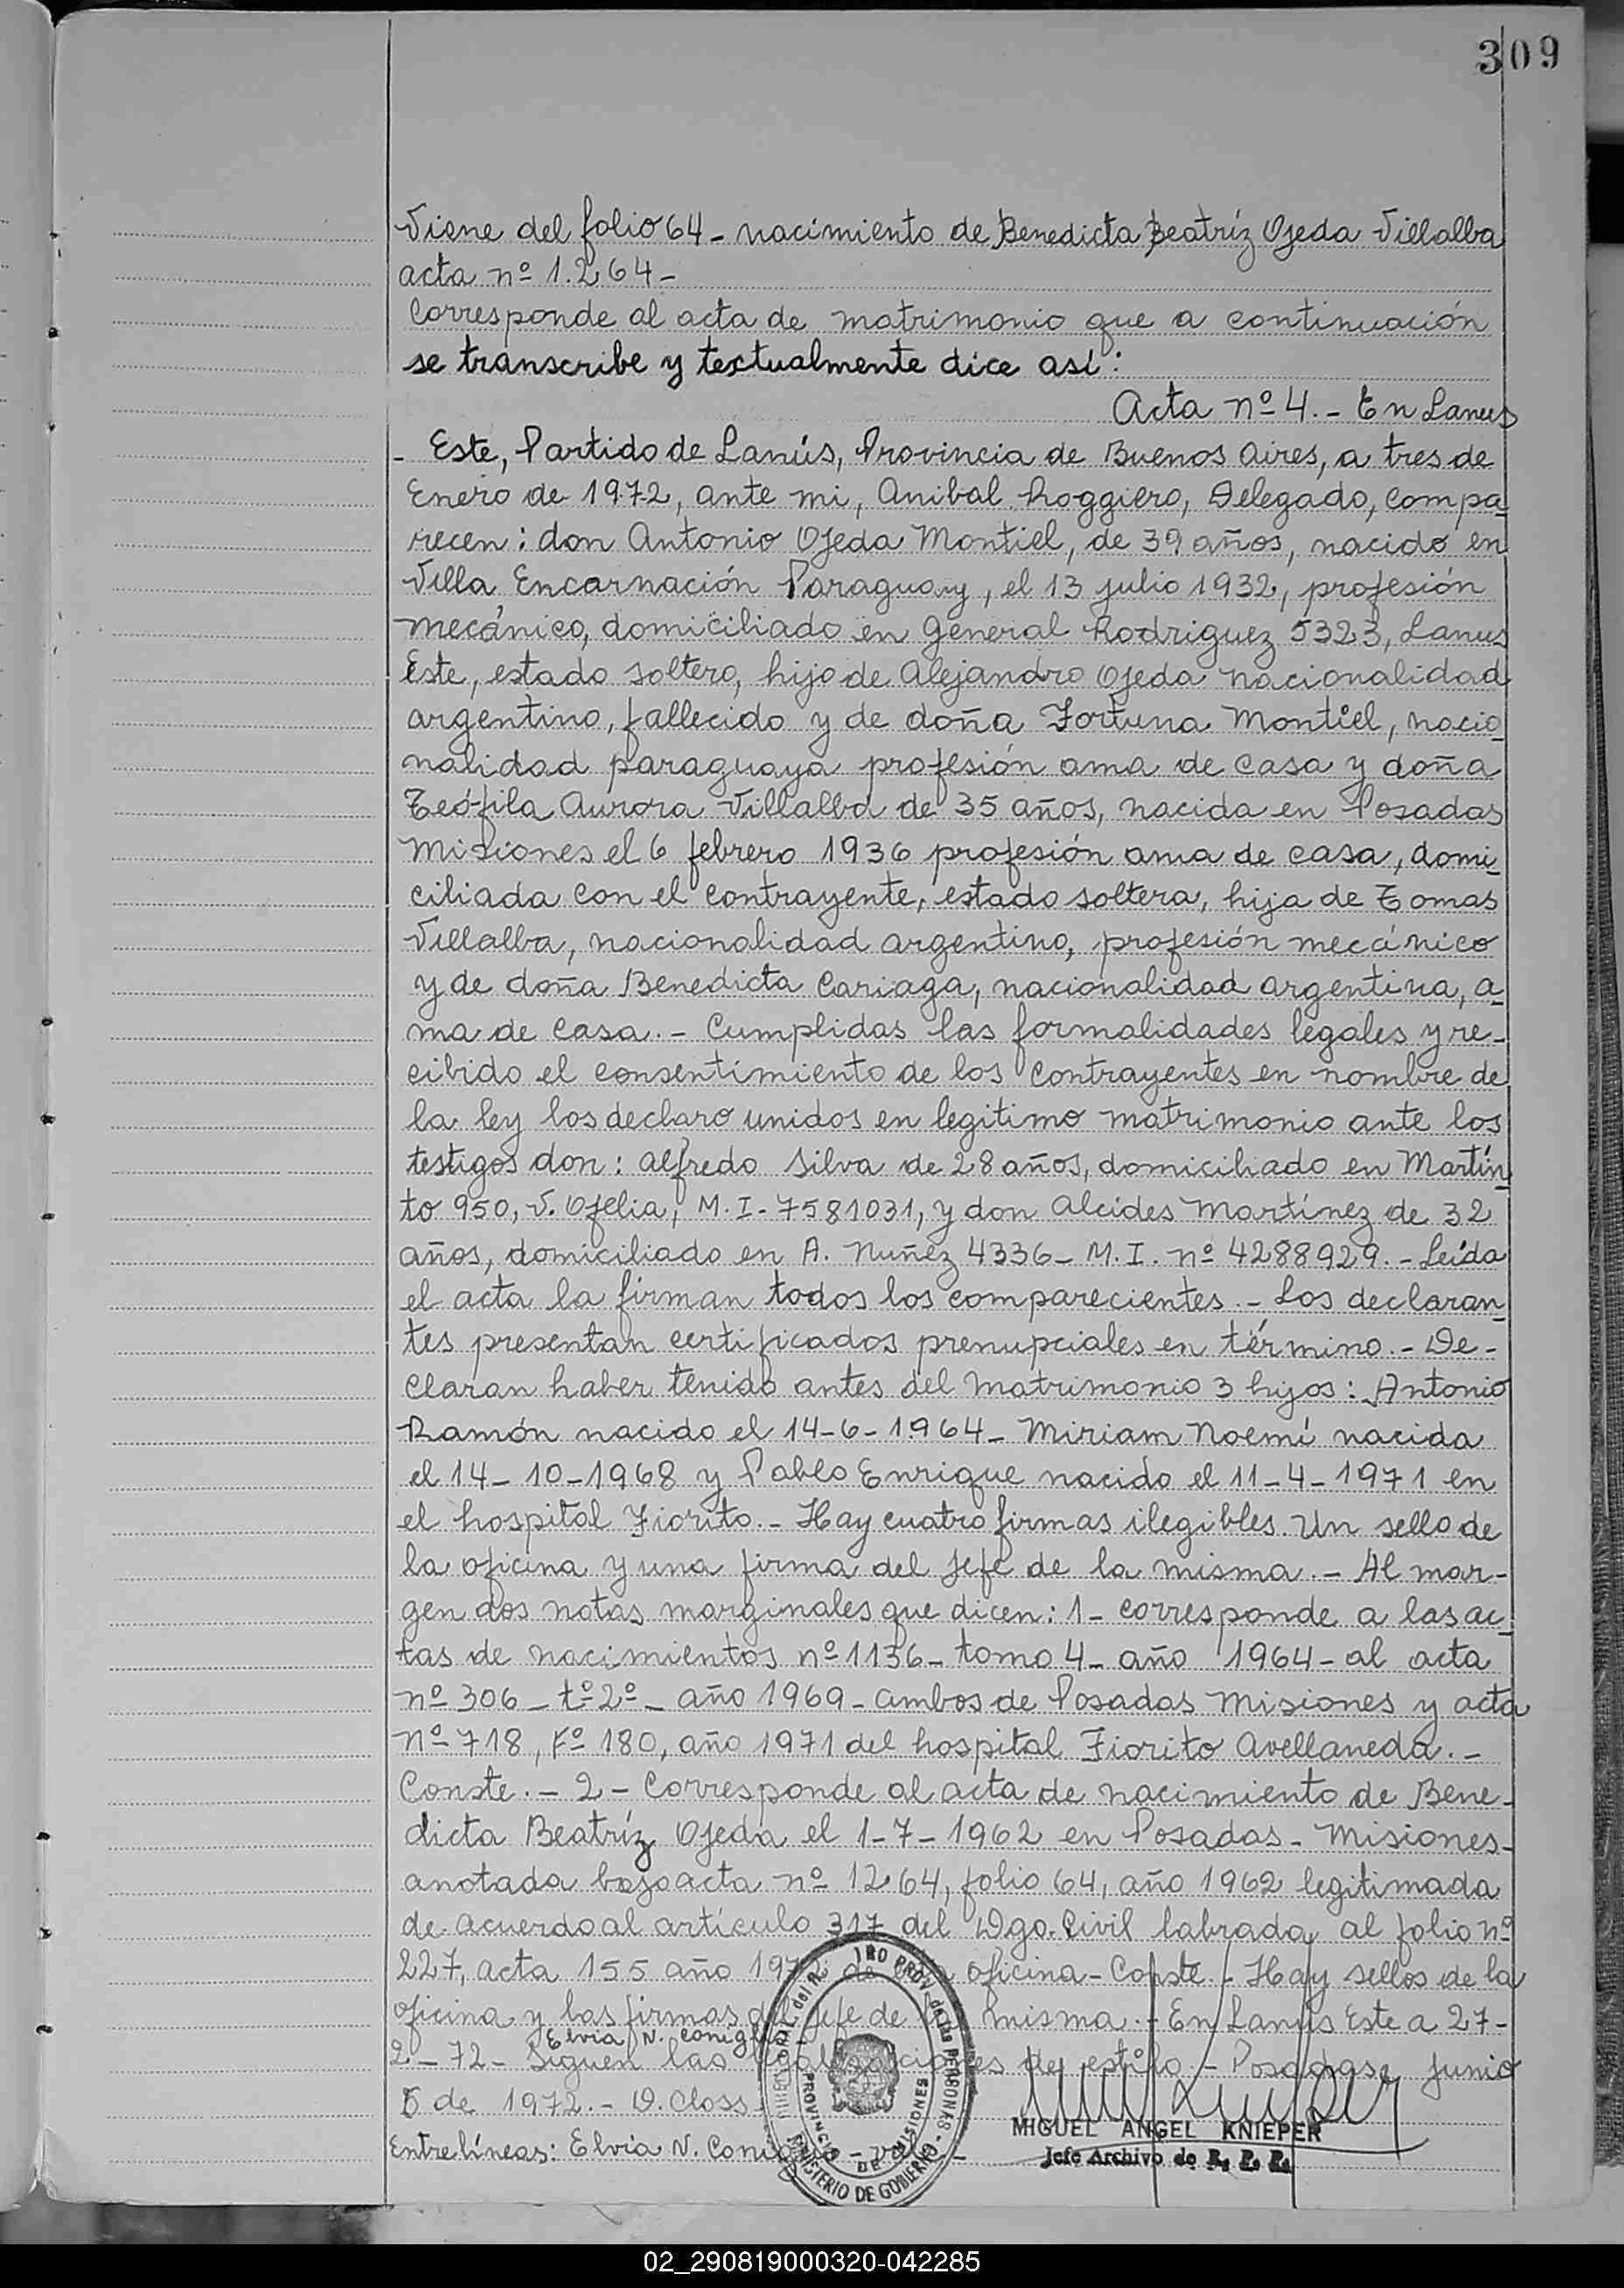 309
Viene del folio 64 - nacimiento de Benedicta Beatríz Ojeda Villalba
acta nº 1.264 -
Corresponde al acta de matrimonio que a continuación
se transcribe y textualmente dice así:
Acta nº 4. - En Lanus
- Este, Partido de Lanús, Provincia de Buenos Aires, a tres de
Enero de 1972, ante mi, Anibal Roggiero, Delegado, compa-
recen: don Antonio Ojeda Montiel, de 39 años, nacido en
Villa Encarnación Paraguay, el 13 julio 1932, profesión
mecánico, domiciliado en General Rodriguez 5323, Lanus
Este, estado soltero, hijo de Alejandro Ojeda nacionalidad
argentino, fallecido y de doña Fortuna Montiel, nacio-
nalidad paraguaya profesión ama de casa y doña
Teófila Aurora Villalba de 35 años, nacida en Posadas
Misiones el 6 febrero 1936 profesión ama de casa, domi-
ciliada con el contrayente, estado soltera, hija de Tomas
Villalba, nacionalidad argentino, profesión mecánico
y de doña Benedicta Cariaga, nacionalidad argentina, a-
ma de casa. - Cumplidas las formalidades legales y re-
cibido el consentimiento de los contrayentes en nombre de
la ley los declaro unidos en legitimo matrimonio ante los
testigos don: Alfredo Silva de 28 años, domiciliado en Martín
to 950, V. Ofelia, M.I. 7581031, y don Alcides Martínez de 32
años, domiciliado en A. Nuñez 4336 - M.I. nº 4288929. - Leída
el acta la firman todos los comparecientes. - Los declaran-
tes presentan certificados prenupciales en término. - De-
claran haber tenido antes del matrimonio 3 hijos: Antonio
Ramón nacido el 14-6-1964 - Miriam Noemí nacida
el 14-10-1968 y Pablo Enrique nacido el 11-4-1971 en
el hospital Fiorito. - Hay cuatro firmas ilegibles. Un sello de
la oficina y una firma del Jefe de la misma. - Al mar-
gen dos notas marginales que dicen: 1 - corresponde a las ac-
tas de nacimientos nº 1136 - tomo 4 - año 1964 - al acta
nº 306 - tº 2º - año 1969 - ambos de Posadas Misiones y acta
nº 718, Fº 180, año 1971 del hospital Fiorito Avellaneda. -
Conste. - 2 - Corresponde al acta de nacimiento de Bene-
dicta Beatríz Ojeda el 1-7-1962 en Posadas - Misiones -
anotada bajo acta nº 1264, folio 64, año 1962 legitimada
de acuerdo al artículo 317 del Cdgo. Civil labrada al folio nº
227, acta 155 año 1972 de oficina - Conste. - Hay sellos de la
oficina y las firmas del Jefe de la misma. - En Lanús Este a 27-
Elvia N.
2-72 - Siguen las legalizaciones de estilo. - Posadas, junio
5 de 1972. - D. Closs
MIGUEL ANGEL KNIEPER
Jefe Archivo de R. P. P.
Entrelíneas: Elvia N. - Vale -
PROVINCIA DE MISIONES
MINISTERIO DE GOBIERNO
PERSONAS
02_290819000320-042285